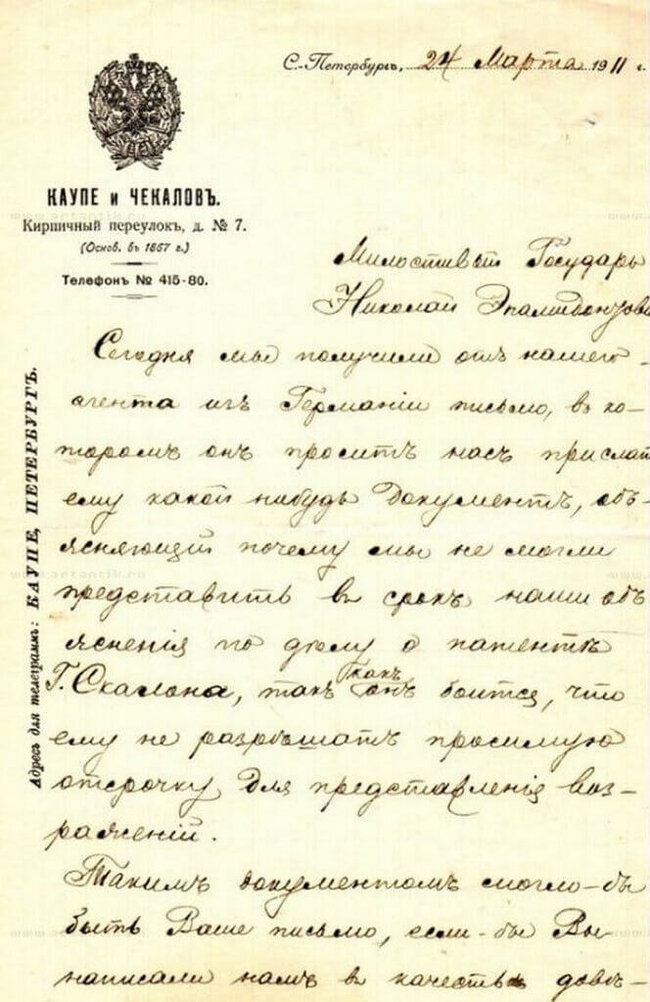 С.-Петербургъ, 24 Марта 1911 г.
КАУПЕ и ЧЕКАЛОВЪ.
Кирпичный переулокъ, д. № 7.
(Основ. въ 1857 г.)
Телефонъ № 415-80.
Адресъ для телеграммъ: КАУПЕ, ПЕТЕРБУРГЪ.
Милостивый Государь
Николай
Сегодня мы получили отъ нашего
агента изъ Германіи письмо, въ ко-
торомъ онъ проситъ насъ прислать
ему какой нибудь документъ, объ-
ясняющій почему мы не могли
представить въ срокъ наши объ
ясненія по дѣлу о патентѣ
Г. Скалона, такъ какъ онъ боится, что
ему не разрѣшатъ просимую
отсрочку для представленія воз-
раженій.
Такимъ документомъ могло-бы
быть Ваше письмо, если-бы Вы
написали намъ въ качествѣ довѣ-